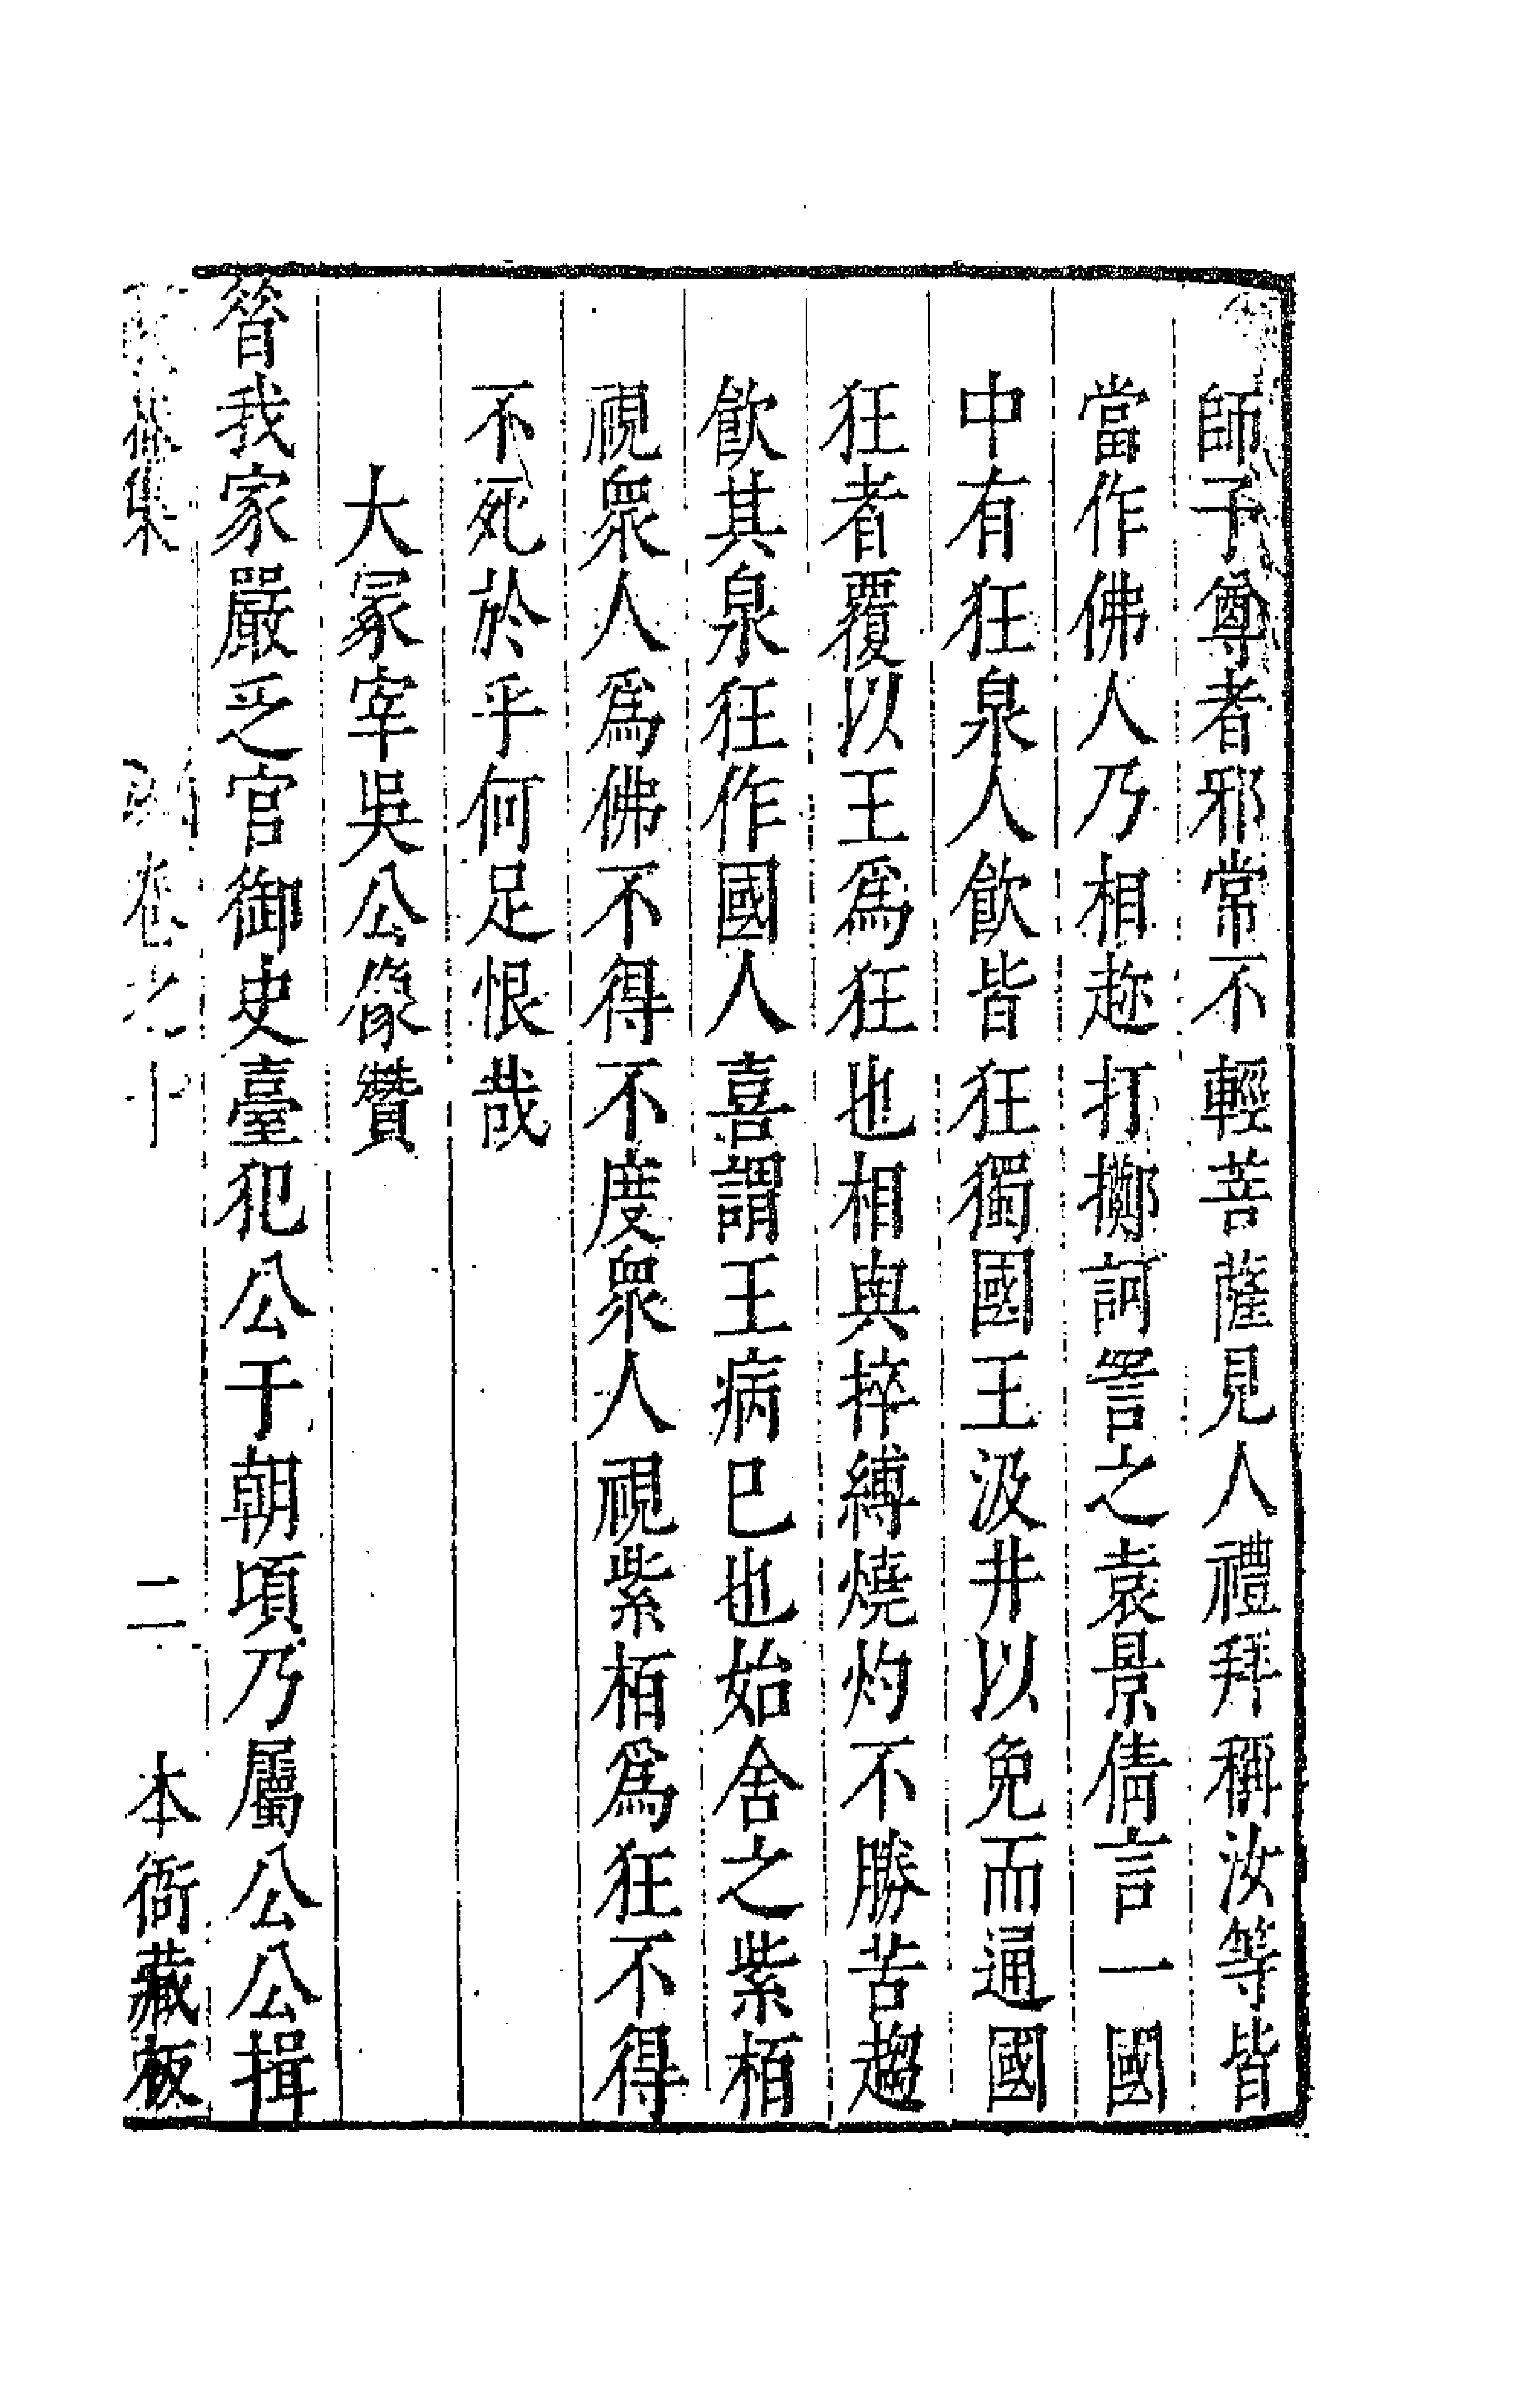 師子尊者邪常不輕菩薩見人禮拜稱汝等皆
當作佛人乃相趂打擲訶詈之袁景倩言一國
中有狂泉人飲皆狂獨國王汲井以免而通國
狂者覆以王為狂也相與捽縛燒灼不勝苦趨
飲其泉狂作國人喜謂王病已也始舍之紫栢
視眾人為佛不得不度眾人視紫栢為狂不得
不死於乎何足恨哉
大冢宰吳公像贊
昝我家嚴乏官御史臺犯公于朝頃乃屬公公揖
集 卷之十 二 本衙藏板